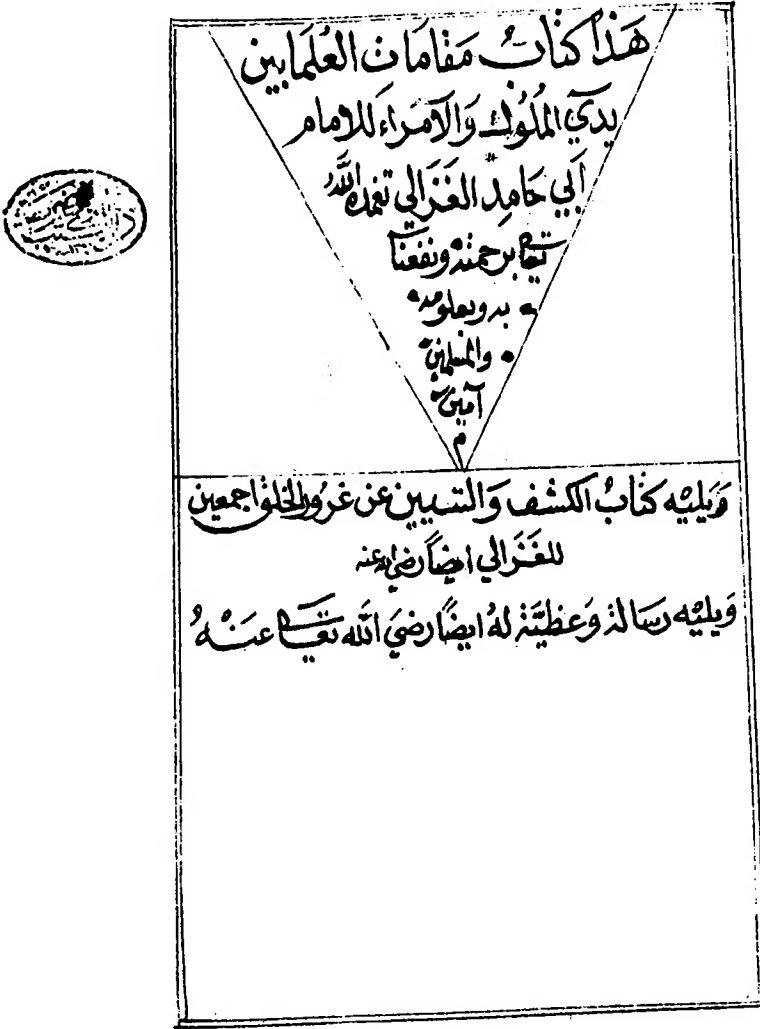 هَذَا كتابُ مَقَامَات العُلَمَا بين
يدَي المُلُوك وَالاَمَراء للامام
أبي حَامِد الغَزَالي تغمده اللَّه
تعا برحمته ونفعنا
به وبعلومه
والمسلمين
آمين
م
وَيليْه كتَابُ الكشف وَالتبيين عن غرُور الخلق اجمعين
للغَزَالي ايضاً رضي الله عنه
وَيليْه رسَالة وَعظيَّة لهُ ايضاً رضيَ الله تعا عنهُ